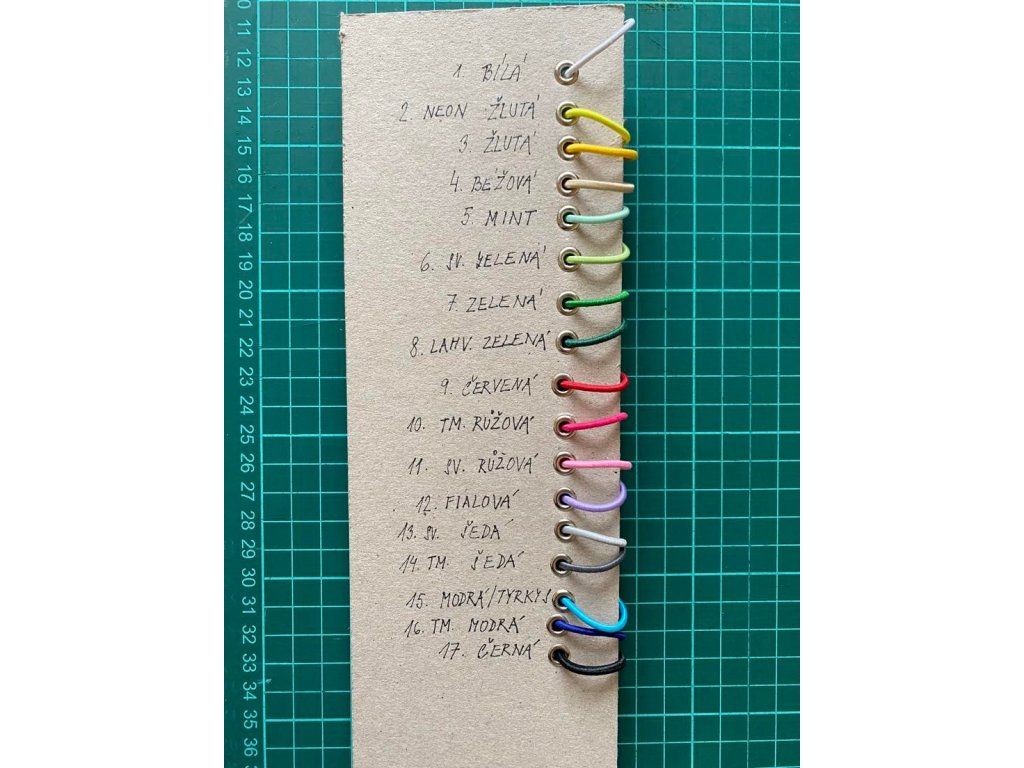 1. BÍLÁ
2. NEON ŽLUTÁ
3. ŽLUTÁ
4. BÉŽOVÁ
5. MINT
6. SV. ZELENÁ
7. ZELENÁ
8. LAHV. ZELENÁ
9. ČERVENÁ
10. TM. RŮŽOVÁ
11. SV. RŮŽOVÁ
12. FIALOVÁ
13. SV. ŠEDÁ
14. TM. ŠEDÁ
15. MODRÁ/TYRKYS
16. TM. MODRÁ
17. ČERNÁ
10
11
12
13
14
15
16
17
18
19
20
21
22
23
24
25
26
27
28
29
30
31
32
33
34
35
36